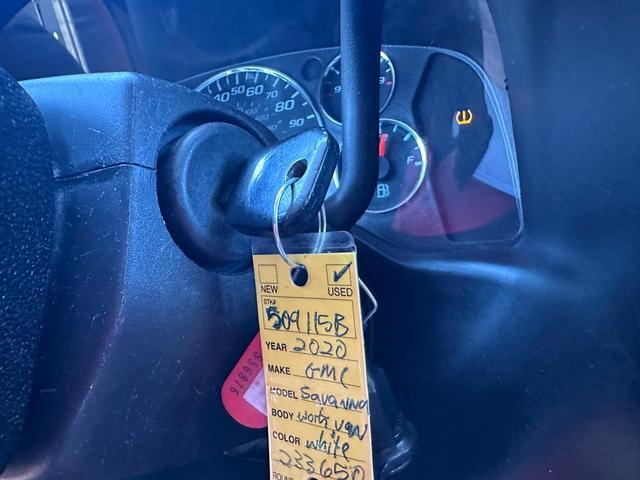 40 50 60 70
80
90
F
NEW USED
STK#
509115B
YEAR 2020
MAKE GMC
MODEL Savanna
BODY work van
COLOR white
233650